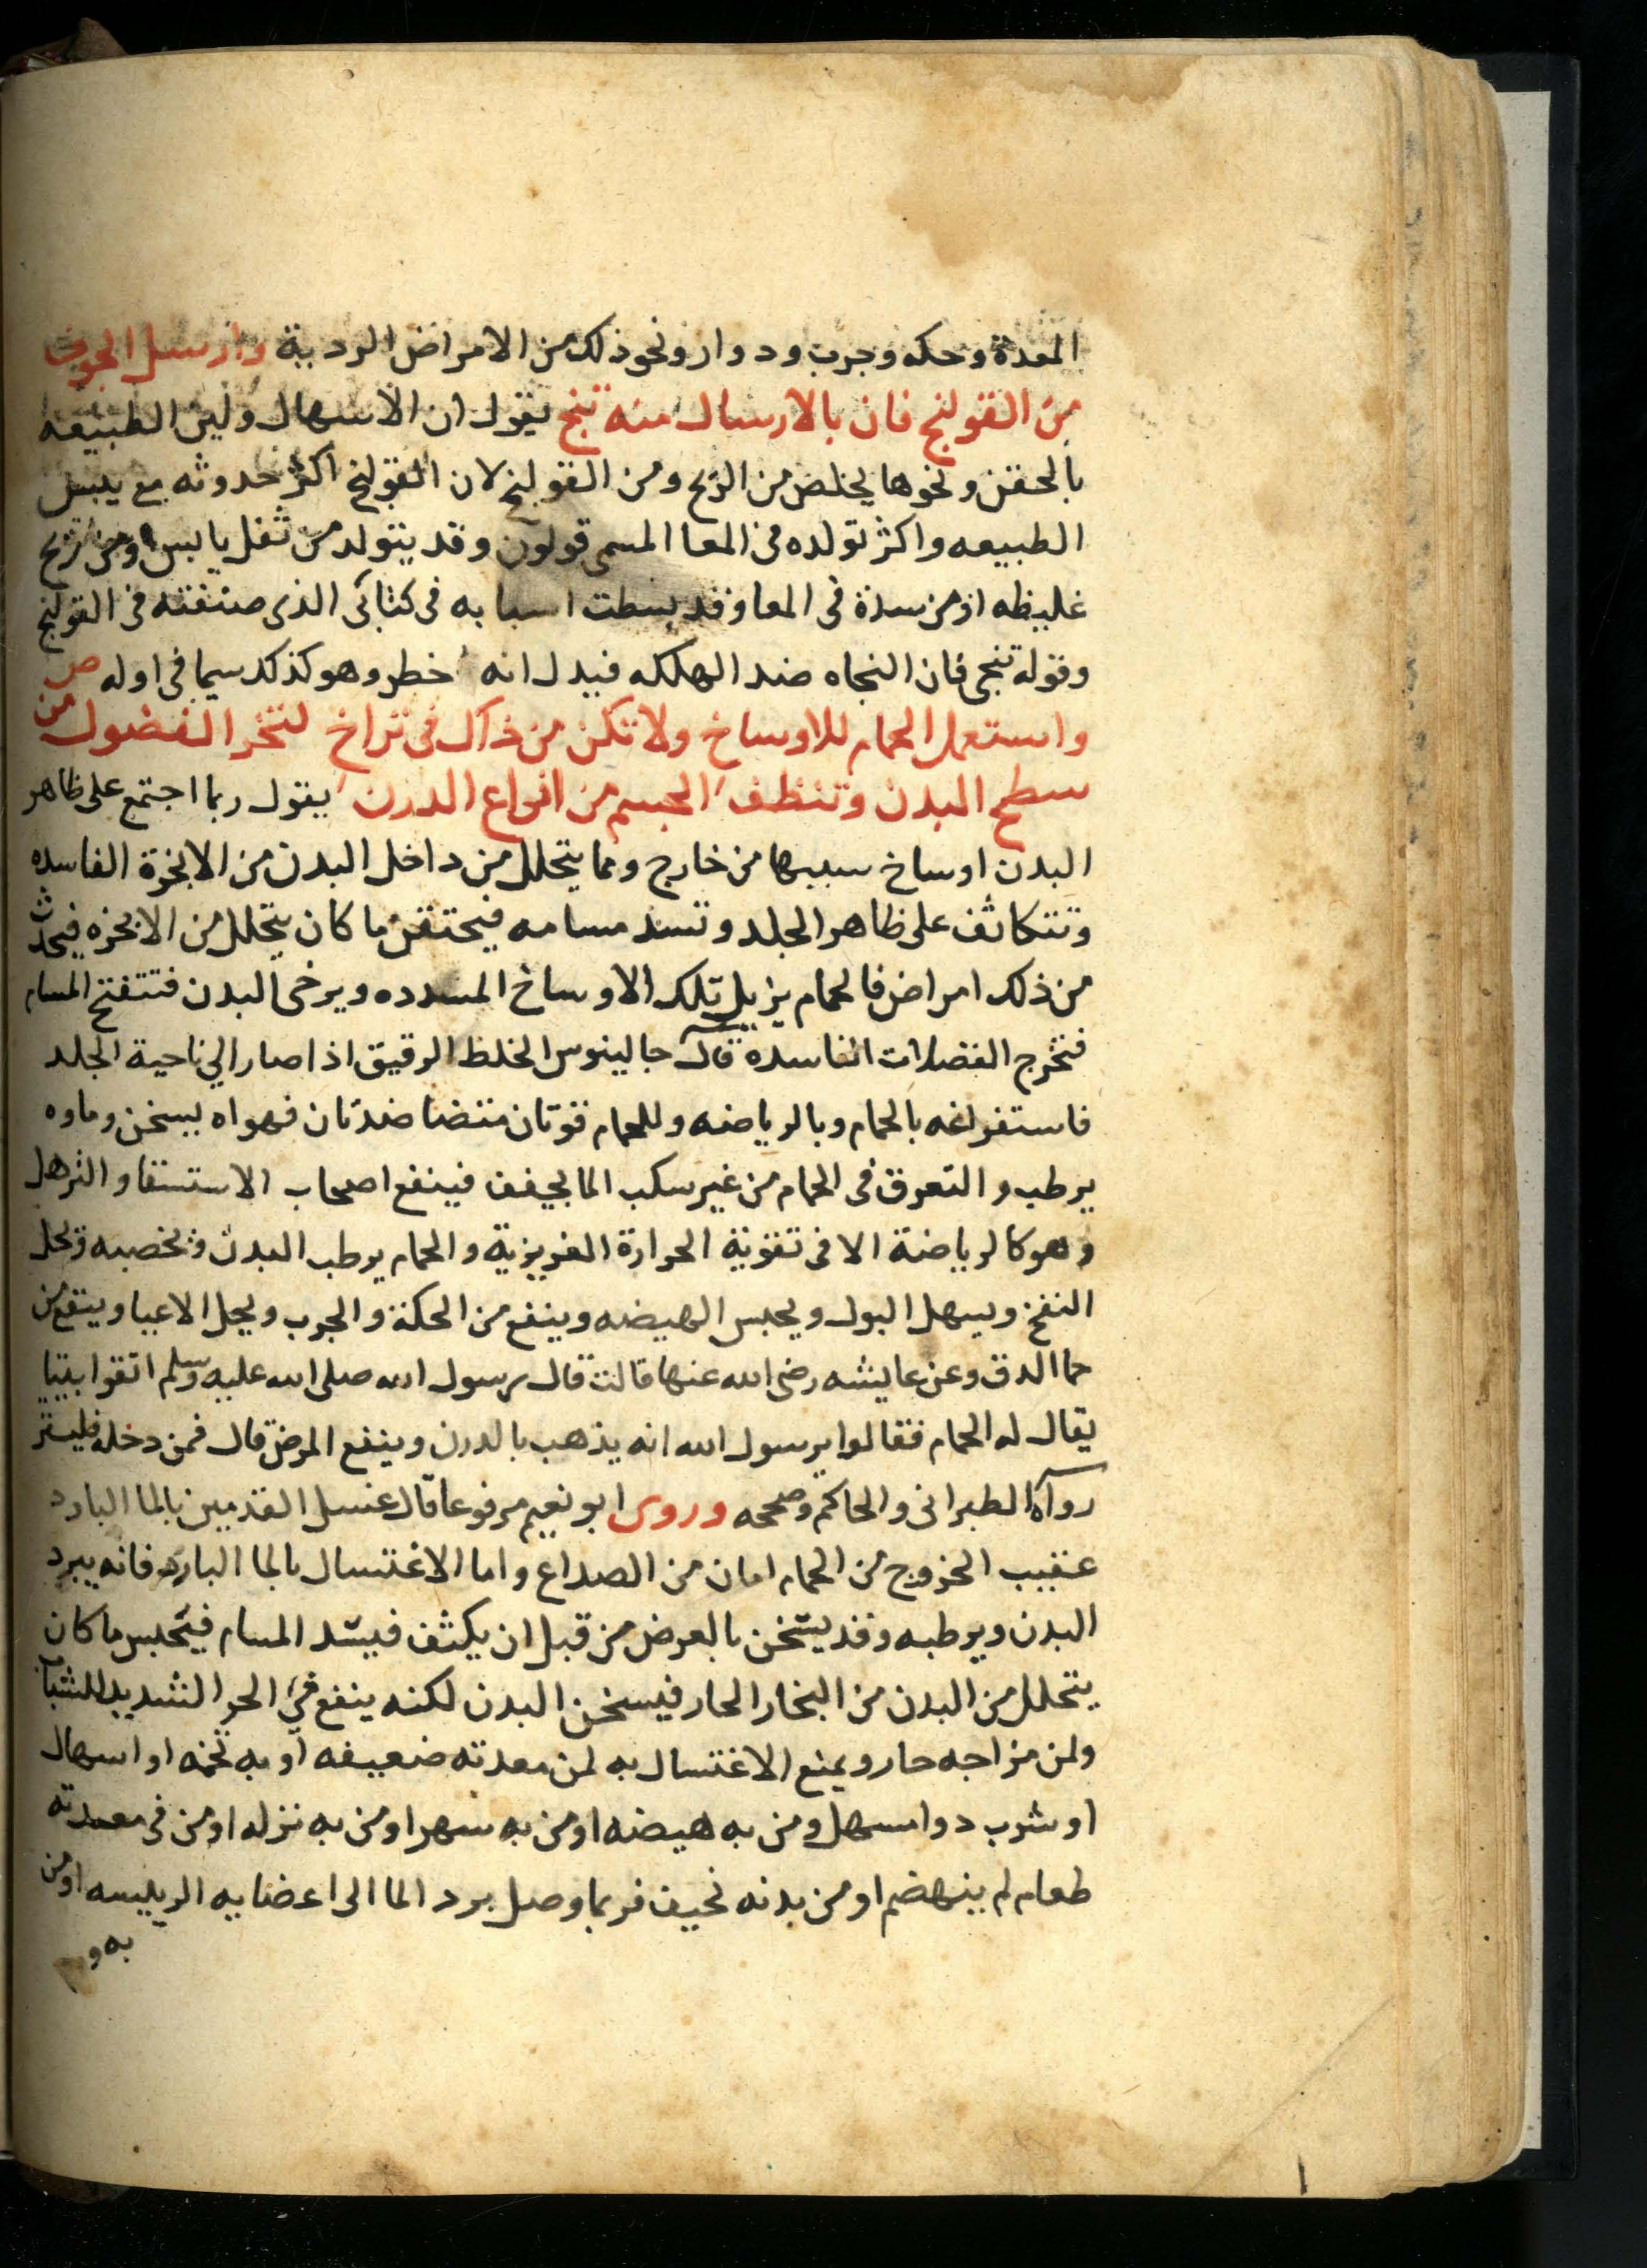 المعدة وحكه وجرب ودوار ونحو ذلك من الامراض الردية وارسل الجوف
من القولنج فان بالارسال منه تنج يقول ان الاسهال ولين الطبيعه
بالحقن ونحوها يخلص من الريح ومن القولنج لان القولنج اكثر حدوثه مع يبس
الطبيعه واكثر تولده من المعا المسمى قولون وقد يتولد من ثفل يابس ومن ريح
غليظه او من سدة فى المعا وقد بسطت اسبابه فى كتابى الذى صنفته فى القولنج
وقوله تنجى فان النجاه ضد الهلكه فيدل انه خطر وهو كذلك سيما فى اوله ص
واستعمل الحمام للاوساخ ولا تكن من ذاك فى تراخ لتخر الفضول من
سطح البدن وتنظف الجسم من انواع الدرن يقول ربما اجتمع على ظاهر
البدن اوساخ سببها من خارج ومما يتحلل من داخل البدن من الابخرة الفاسده
وتتكاثف على ظاهر الجلد وتسد مسامه فيحتقن ما كان يتحلل من الابخره فيحدث
من ذلك امراض فالحمام يزيل تلك الاوساخ المسدده ويرخى البدن فتتفتح المسام
فتخرج الفضلات الفاسده قال جالينوس الخلط الرقيق اذا صار الي ناحية الجلد
فاستفراغه بالحمام وبالرياضه وللحمام قوتان متضاضدتان فهواه يسخن وماوه
يرطب والتعرق فى الحمام من غير سكب الما يجفف فينفع اصحاب الاستسقا والترهل
وهو كالرياضة الا فى تقوية الحرارة الغريزية والحمام يرطب البدن ويخصبه ويحل
النفخ ويسهل البول ويحبس الهيضه وينفع من الحكة والجرب ويحل الاعيا وينفع من
حما الدق وعن عايشه رضى الله عنها قالت قال رسول الله صلى الله عليه وسلم اتقوا بيتا
يقال له الحمام فقالوا يرسول الله انه يذهب بالدرن وينفع المرض قال فمن دخله فليستتر
رواه الطبرانى والحاكم وصححه وروى ابو نعيم مرفوعا قال غسل القدمين بالما البارد
عقيب الخروج من الحمام امان من الصداع واما الاغتسال بالما البارد فانه يبرد
البدن ويرطبه وقد يسخن بالعرض من قبل ان يكثف فيسد المسام فيحبس ما كان
يتحلل من البدن من البخار الحار فيسخن البدن لكنه ينفع في الحر الشديد للشباب
ولمن مزاجه حار ويمنع الاغتسال به لمن معدته ضعيفه او به تخمه او اسهال
او شرب دوا مسهل ومن به هيضه او من به سهر او من به نزله او من فى معدته
طعام لم ينهضم او من بدنه نحيف فربما وصل برد الما الى اعضايه الرييسه او من
به و